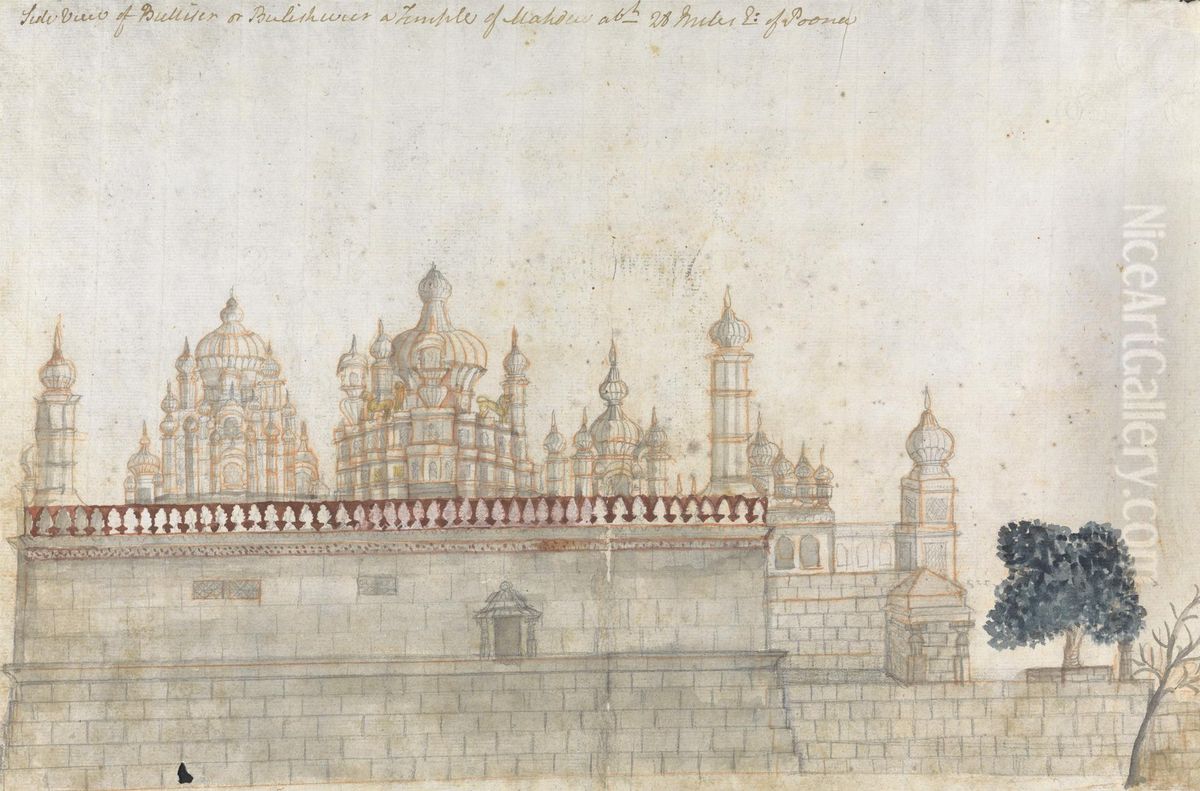 Side View of Bulliser or Bulishwur a Temple of Mahdeu abt 28 Miles E: of Poona
NiceArtGallery.com